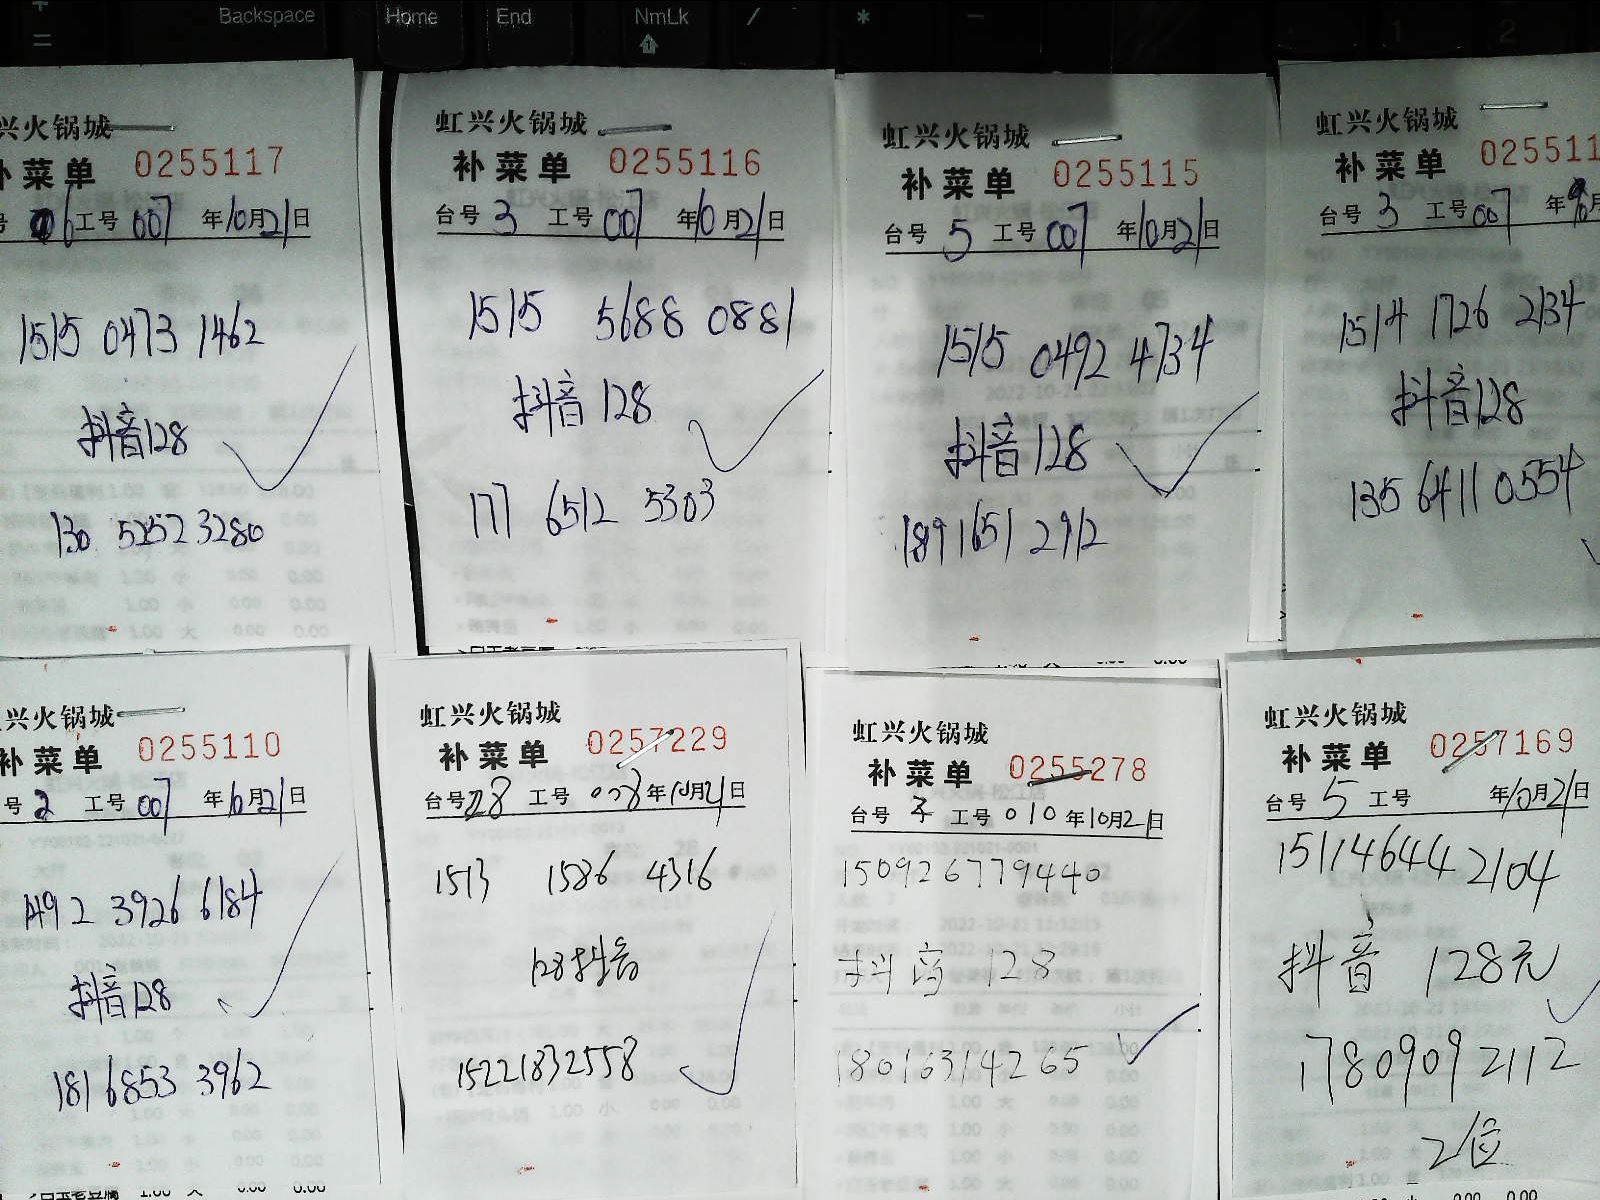 Backspace
Home
End
NmLk
/
*
兴火锅城
补菜单 0255117
号 6 工号 007 年10月21日
1515 0473 1462
抖音128
130 5252 3280
虹兴火锅城
补菜单 0255116
台号 3 工号 007 年10月21日
1515 5688 0881
抖音 128
177 6512 5303
虹兴火锅城
补菜单 0255115
台号 5 工号 007 年10月21日
1515 0492 4734
抖音 128
189 1651 2912
虹兴火锅城
补菜单 025511
台号 3 工号 007 年
1514 1726 2134
抖音128
135 6411 0554
兴火锅城
补菜单 0255110
号 2 工号 007 年10月21日
1492 3926 6184
抖音128
181 6853 3962
虹兴火锅城
补菜单 0257229
台号 28 工号 008 年10月21日
1513 1586 4316
128抖音
15221832558
虹兴火锅城
补菜单 0255278
台号 工号 010 年10月21日
150926779440
抖音 128
18016314265
虹兴火锅城
补菜单 0257169
台号 5 工号 年10月21日
151146442104
抖音 128元
17809092112
2位